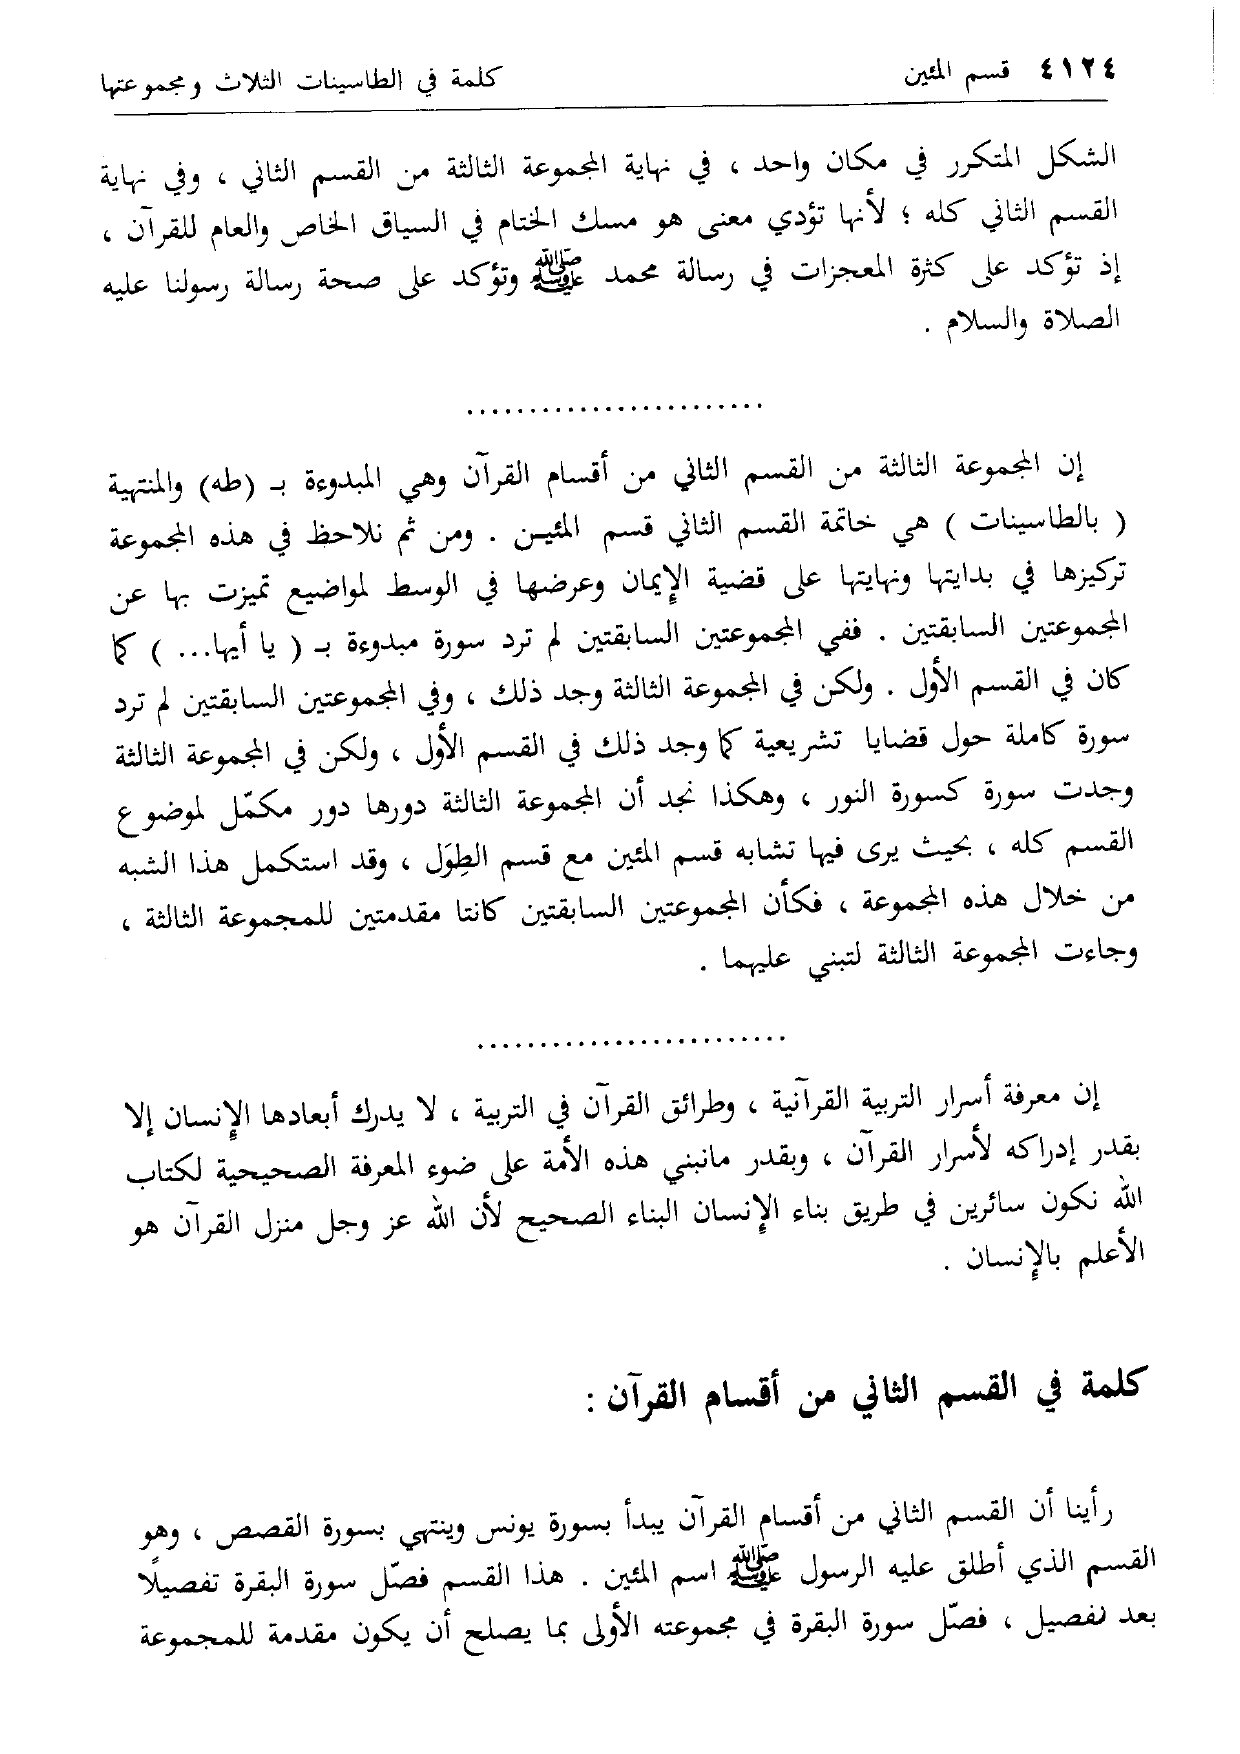 ٤١٢٤ قسم المئين كلمة في الطاسينات الثلاث ومجموعتها
الشكل المتكرر في مكان واحد ، في نهاية المجموعة الثالثة من القسم الثاني ، وفي نهاية
القسم الثاني كله ؛ لأنها تؤدي معنى هو مسك الختام في السياق الخاص والعام للقرآن ،
إذ تؤكد على كثرة المعجزات في رسالة محمد ﷺ وتؤكد على صحة رسالة رسولنا عليه
الصلاة والسلام .
........................
إن المجموعة الثالثة من القسم الثاني من أقسام القرآن وهي المبدوءة بـ (طه) والمنتهية
( بالطاسينات ) هي خاتمة القسم الثاني قسم المئيـن . ومن ثم نلاحظ في هذه المجموعة
تركيزها في بدايتها ونهايتها على قضية الإيمان وعرضها في الوسط لمواضيع تميزت بها عن
المجموعتين السابقتين . ففي المجموعتين السابقتين لم ترد سورة مبدوءة بـ ( يا أيها... ) كما
كان في القسم الأول . ولكن في المجموعة الثالثة وجد ذلك ، وفي المجموعتين السابقتين لم ترد
سورة كاملة حول قضايا تشريعية كما وجد ذلك في القسم الأول ، ولكن في المجموعة الثالثة
وجدت سورة كسورة النور ، وهكذا نجد أن المجموعة الثالثة دورها دور مكمّل لموضوع
القسم كله ، بحيث يرى فيها تشابه قسم المئين مع قسم الطِوَل ، وقد استكمل هذا الشبه
من خلال هذه المجموعة ، فكأن المجموعتين السابقتين كانتا مقدمتين للمجموعة الثالثة ،
وجاءت المجموعة الثالثة لتبني عليهما .
.........................
إن معرفة أسرار التربية القرآنية ، وطرائق القرآن في التربية ، لا يدرك أبعادها الإنسان إلا
بقدر إدراكه لأسرار القرآن ، وبقدر مانبني هذه الأمة على ضوء المعرفة الصحيحية لكتاب
الله نكون سائرين في طريق بناء الإنسان البناء الصحيح لأن الله عز وجل منزل القرآن هو
الأعلم بالإنسان .
كلمة في القسم الثاني من أقسام القرآن :
رأينا أن القسم الثاني من أقسام القرآن يبدأ بسورة يونس وينتهي بسورة القصص ، وهو
القسم الذي أطلق عليه الرسول ﷺ اسم المئين . هذا القسم فصّل سورة البقرة تفصيلًا
بعد تفصيل ، فصّل سورة البقرة في مجموعته الأولى بما يصلح أن يكون مقدمة للمجموعة